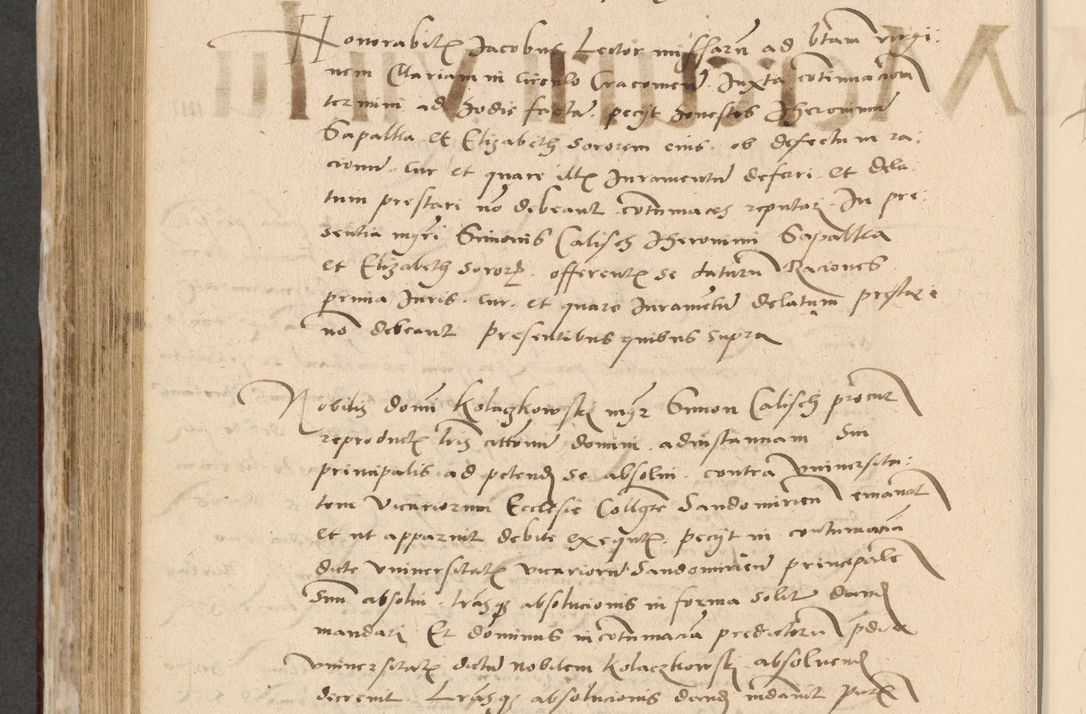 Honorabilis Jacobus Lector missarum ad btam virgi-
nem Mariam in circulo Cracovien Juxta cotinuacionem
termini ad hodie facta pecyt honestos Hieronimum
Sapallka et Elizabeth sororem eius ob defectum ra-
cionum cur et quare illis Juramentum deferri et dela-
tum prestari no debeant cotumaces reputari In pre-
sentia mgri Simonis Calisch Hieronimi Sapallka
et Elizabeth sororis offerentis se daturum Raciones
primia Juris cur et quare Juramentum delatum prestari
no debeant presentibus quibus supra
Nobilis domi Kolaczkowski mgr Simon Calisch procur
reproductis lris cittorum domini ad instanciam dni
principalis ad petend se absolui contra vniuersita-
tem vicariorum Ecclesie Collgte Sandomirien emanat
et ut apparuit debite exequtis pecyt in contumacia
dicte vniuersitatis vicariorum Sandomirien principale
Suu absolui lrasq absolucionis in forma solit dand
mandari Et dominus in cotumaciam predictoru pdicte
vniuersitatis dictu nobilem Kolaczkowski absoluend
decreuit Lrasq absolucionis dand mdauit